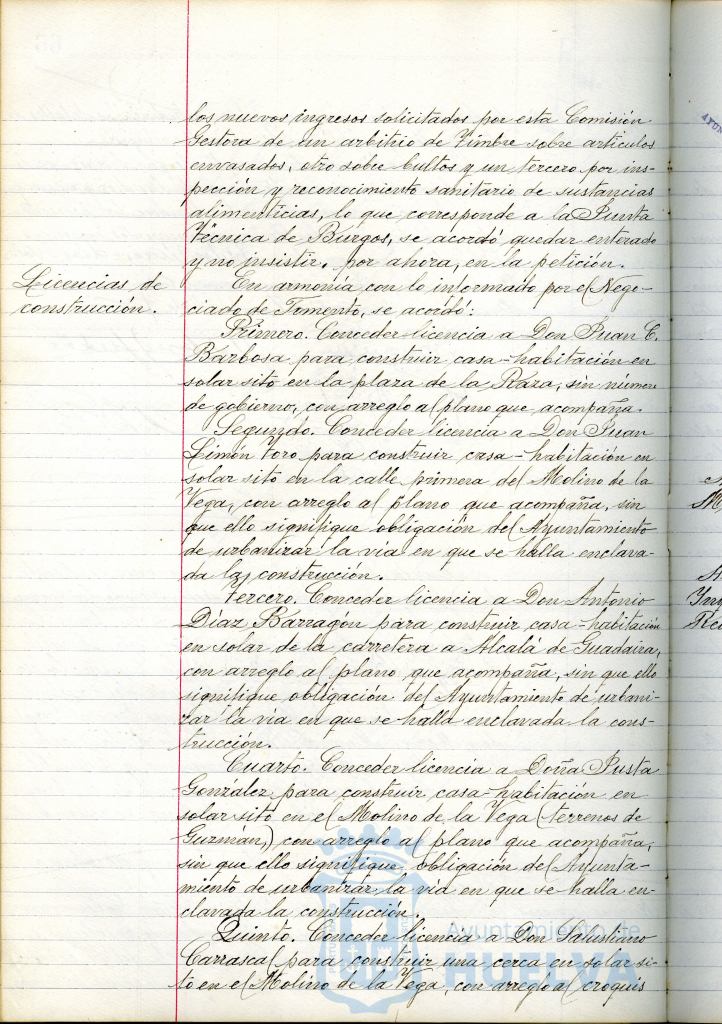 los nuevos ingresos solicitados por esta Comisión
Gestora de un arbitrio de Timbre sobre articulos
envasados, otro sobre bultos y un tercero por ins-
pección y reconocimiento sanitario de sustancias
alimenticias, lo que corresponde a la Junta
Técnica de Burgos, se acordó quedar enterado
y no insistir, por ahora, en la petición.
Licencias de
construcción.
En armonía con lo informado por el Nego-
ciado de Fomento, se acordó:
Primero. Conceder licencia a Don Juan C.
Barbosa para construir casa-habitación en
solar sito en la plaza de la Raza, sin número
de gobierno, con arreglo al plano que acompaña.
Segundo. Conceder licencia a Don Juan
Limón Toro para construir casa-habitación en
solar sito en la calle primera del Molino de la
Vega, con arreglo al plano que acompaña, sin
que ello signifique obligación del Ayuntamiento
de urbanizar la vía en que se halla enclava-
da la construcción.
Tercero. Conceder licencia a Don Antonio
Díaz Barragón para construir casa-habitación
en solar de la carretera a Alcalá de Guadaira,
con arreglo al plano que acompaña, sin que ello
signifique obligación del Ayuntamiento de urbani-
zar la vía en que se halla enclavada la cons-
trucción.
Cuarto. Conceder licencia a Doña Justa
Gonzalez para construir casa-habitación en
solar sito en el Molino de la Vega (terrenos de
Guzmán,) con arreglo al plano que acompaña,
sin que ello signifique obligación del Ayunta-
miento de urbanizar la vía en que se halla en-
clavada la construcción.
Quinto. Conceder licencia a Don Salustiano
Carrascal para construir una cerca en solar si-
to en el Molino de la Vega, con arreglo al croquis
Ayuntamiento de
HUELVA